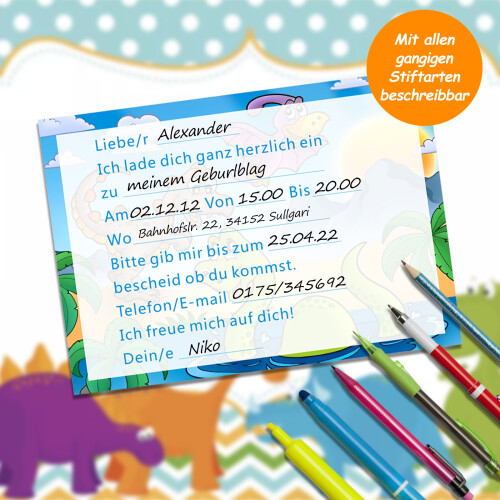 Mit allen
gangigen
Stiftarten
beschreibbar
Liebe/r Alexander
Ich lade dich ganz herzlich ein
zu meinem Geburlblag
Am 02.12.12 Von 15.00 Bis 20.00
Wo Bahnhofslr. 22, 34152 Sullgari
Bitte gib mir bis zum 25.04.22
bescheid ob du kommst.
Telefon/E-mail 0175/345692
Ich freue mich auf dich!
Dein/e Niko